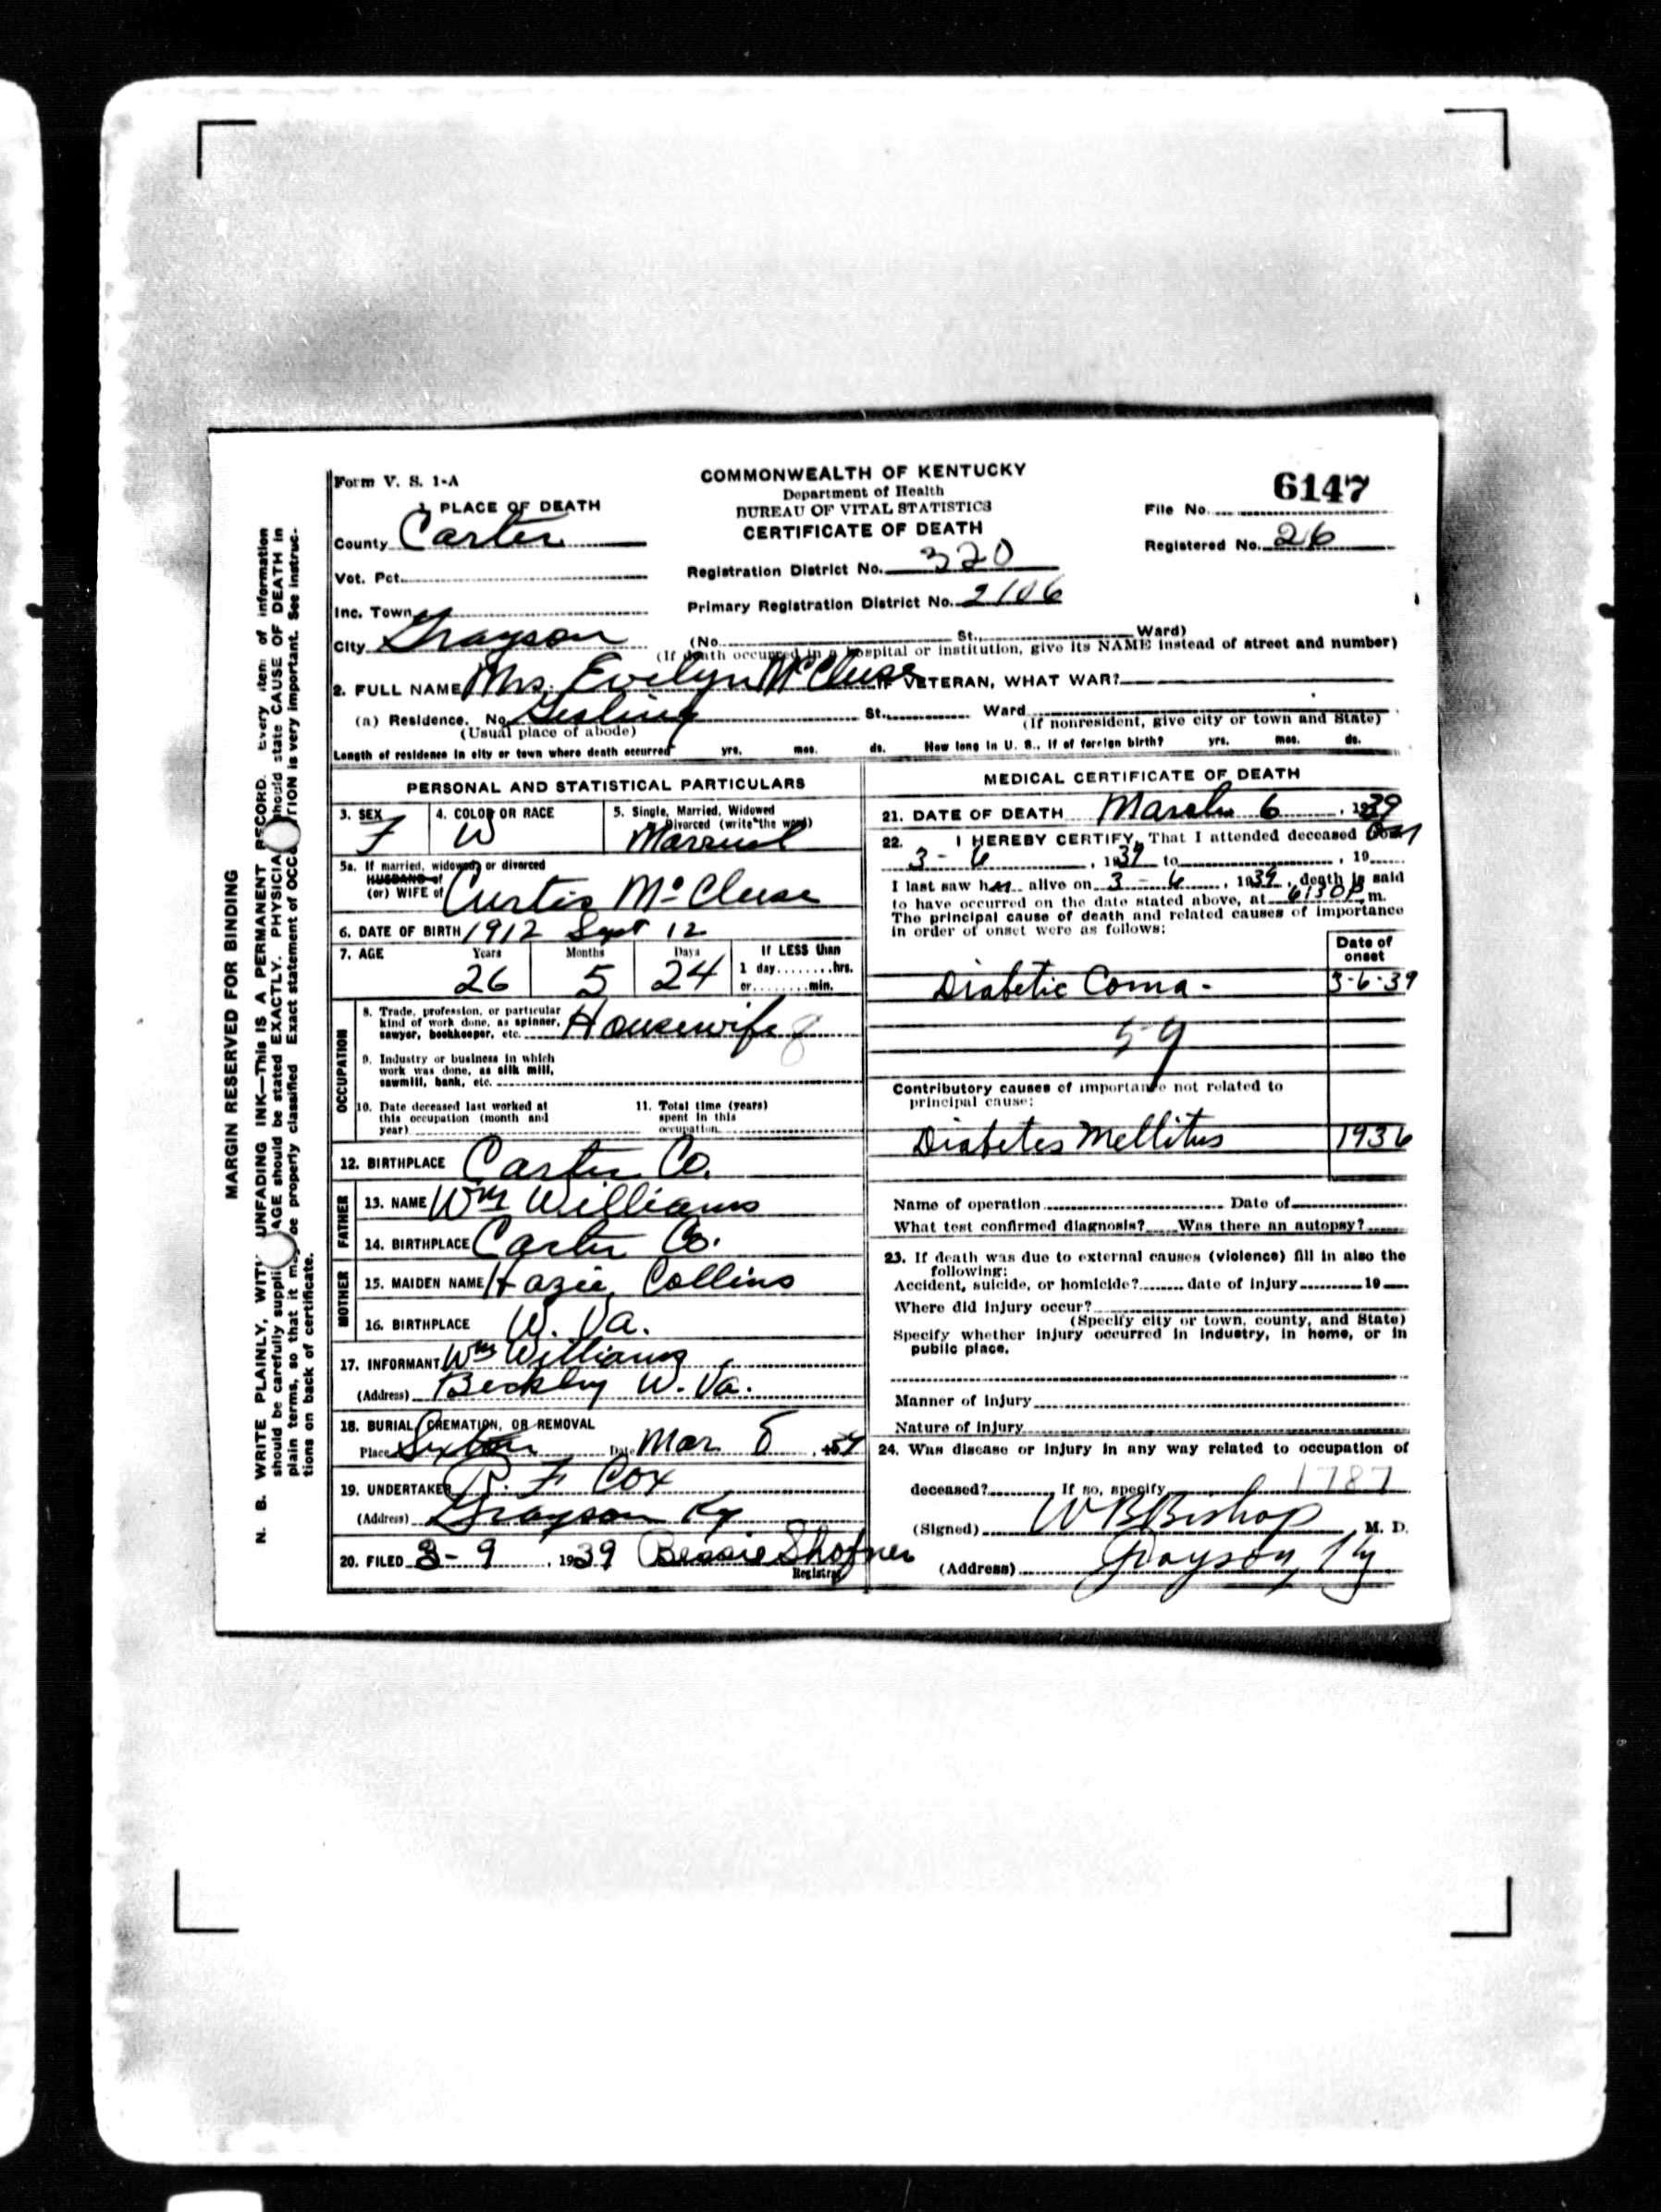 Form V. S. 1-A
COMMONWEALTH OF KENTUCKY
Department of Health
BUREAU OF VITAL STATISTICS
CERTIFICATE OF DEATH
6147
File No.
Registered No. 26
1. PLACE OF DEATH
County Carter
Vot. Pct.
Registration District No. 320
Inc. Town
Primary Registration District No. 2106
City Grayson (No. St., Ward)
(If death occurred in a hospital or institution, give its NAME instead of street and number)
2. FULL NAME Mrs. Evelyn McCluse IF VETERAN, WHAT WAR?
(a) Residence. No. St., Ward
(Usual place of abode) (If nonresident, give city or town and State)
Length of residence in city or town where death occurred yrs. mos. ds. How long in U. S., if of foreign birth? yrs. mos. ds.
PERSONAL AND STATISTICAL PARTICULARS
3. SEX F
4. COLOR OR RACE W
5. Single, Married, Widowed
Divorced (write the word)
Married
5a. If married, widowed, or divorced
HUSBAND of
(or) WIFE of Curtis McCluse
6. DATE OF BIRTH 1912 Sept 12
7. AGE Years Months Days If LESS than
26 5 24 1 day........hrs.
or........min.
OCCUPATION
8. Trade, profession, or particular
kind of work done, as spinner,
sawyer, bookkeeper, etc. Housewife 8
9. Industry or business in which
work was done, as silk mill,
sawmill, bank, etc.
10. Date deceased last worked at
this occupation (month and
year)
11. Total time (years)
spent in this
occupation
12. BIRTHPLACE Carter Co.
FATHER
13. NAME Wm Williams
14. BIRTHPLACE Carter Co.
MOTHER
15. MAIDEN NAME Hazie Collins
16. BIRTHPLACE W. Va.
17. INFORMANT Wm Williams
(Address) Beckley W. Va.
18. BURIAL, CREMATION, OR REMOVAL
Place Sexton Date Mar 8, 1939
19. UNDERTAKER R. F Cox
(Address) Grayson Ky
20. FILED 3-9, 1939 Bessie Shofner
Registrar
MEDICAL CERTIFICATE OF DEATH
21. DATE OF DEATH March 6, 1939
22. I HEREBY CERTIFY, That I attended deceased from
3-6, 1939 to , 19
I last saw her alive on 3-6, 1939, death is said
to have occurred on the date stated above, at 6:30 P. m.
The principal cause of death and related causes of importance
in order of onset were as follows:
Date of
onset
Diabetic Coma - 3-6-39
59
Contributory causes of importance not related to
principal cause:
Diabetes Mellitus 1936
Name of operation Date of
What test confirmed diagnosis? Was there an autopsy?
23. If death was due to external causes (violence) fill in also the
following:
Accident, suicide, or homicide? date of injury 19
Where did injury occur?
(Specify city or town, county, and State)
Specify whether injury occurred in industry, in home, or in
public place.
Manner of injury
Nature of injury
24. Was disease or injury in any way related to occupation of
deceased? If so, specify 1787
(Signed) W B Bishop, M. D.
(Address) Grayson, Ky
MARGIN RESERVED FOR BINDING
N. B. WRITE PLAINLY, WITH UNFADING INK—THIS IS A PERMANENT RECORD. Every item of information
should be carefully supplied AGE should be stated EXACTLY. PHYSICIA should state CAUSE OF DEATH in
plain terms, so that it may be properly classified Exact statement of OCC TION is very important. See instruc-
tions on back of certificate.